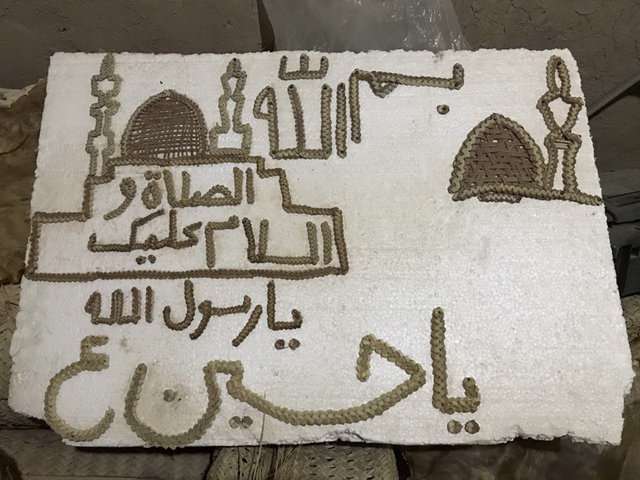 بسم الله
الصلاة و
السلام عليك
يا رسول الله
يا حسين ع